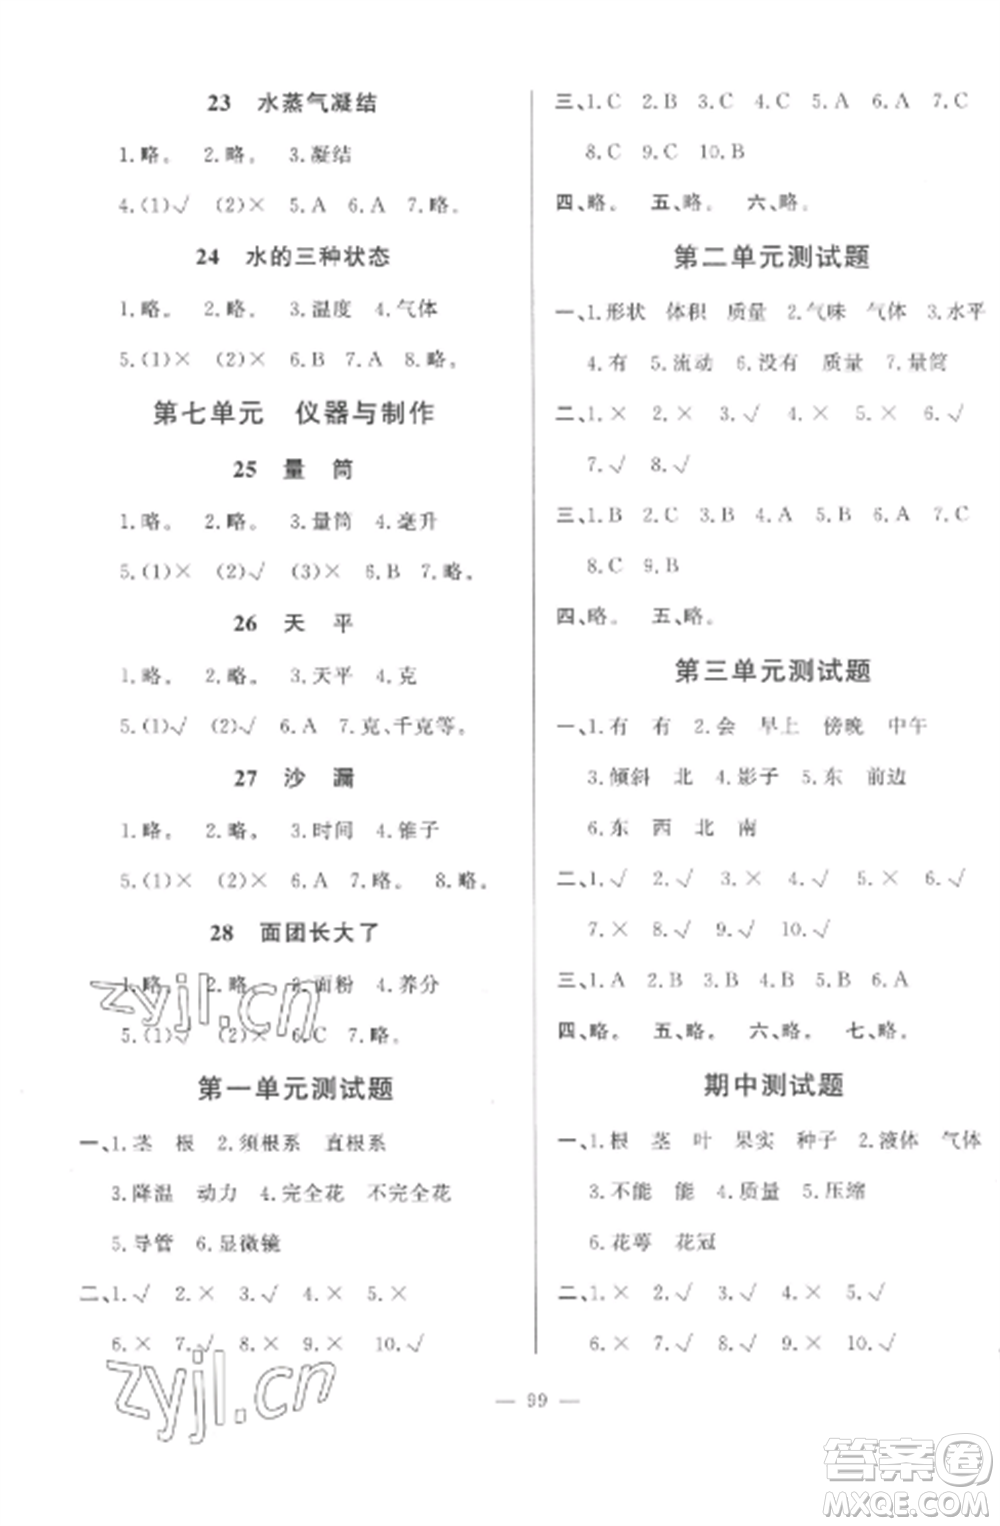 23 水蒸气凝结
1.略。 2.略。 3.凝结
4.(1)√ (2)× 5.A 6.A 7.略。
24 水的三种状态
1.略。 2.略。 3.温度 4.气体
5.(1)× (2)× 6.B 7.A 8.略。
第七单元 仪器与制作
25 量 筒
1.略。 2.略。 3.量筒 4.毫升
5.(1)× (2)√ (3)× 6.B 7.略。
26 天 平
1.略。 2.略。 3.天平 4.克
5.(1)√ (2)√ 6.A 7.克、千克等。
27 沙 漏
1.略。 2.略。 3.时间 4.锥子
5.(1)× (2)× 6.A 7.略。 8.略。
28 面团长大了
1.略。 2.略。 3.面粉 4.养分
5.(1)√ (2)× 6.C 7.略。
第一单元测试题
一、1.茎 根 2.须根系 直根系
3.降温 动力 4.完全花 不完全花
5.导管 6.显微镜
二、1.√ 2.× 3.√ 4.× 5.×
6.× 7.√ 8.× 9.× 10.√
三、1.C 2.B 3.C 4.C 5.A 6.A 7.C
8.C 9.C 10.B
四、略。 五、略。 六、略。
第二单元测试题
一、1.形状 体积 质量 2.气味 气体 3.水平
4.有 5.流动 6.没有 质量 7.量筒
二、1.× 2.× 3.√ 4.× 5.× 6.√
7.√ 8.√
三、1.B 2.C 3.B 4.A 5.B 6.A 7.C
8.C 9.B
四、略。 五、略。
第三单元测试题
一、1.有 有 2.会 早上 傍晚 中午
3.倾斜 北 4.影子 5.东 前边
6.东 西 北 南
二、1.√ 2.√ 3.√ 4.√ 5.× 6.√
7.× 8.√ 9.× 10.√
三、1.A 2.B 3.B 4.B 5.B 6.A
四、略。 五、略。 六、略。 七、略。
期中测试题
一、1.根 茎 叶 果实 种子 2.液体 气体
3.不能 能 4.质量 5.压缩
6.花萼 花冠
二、1.× 2.√ 3.√ 4.× 5.√ 6.√
7.× 8.√ 9.× 10.√
— 99 —
zyjl.cn
zyjl.cn
答案卷
MXQE.COM